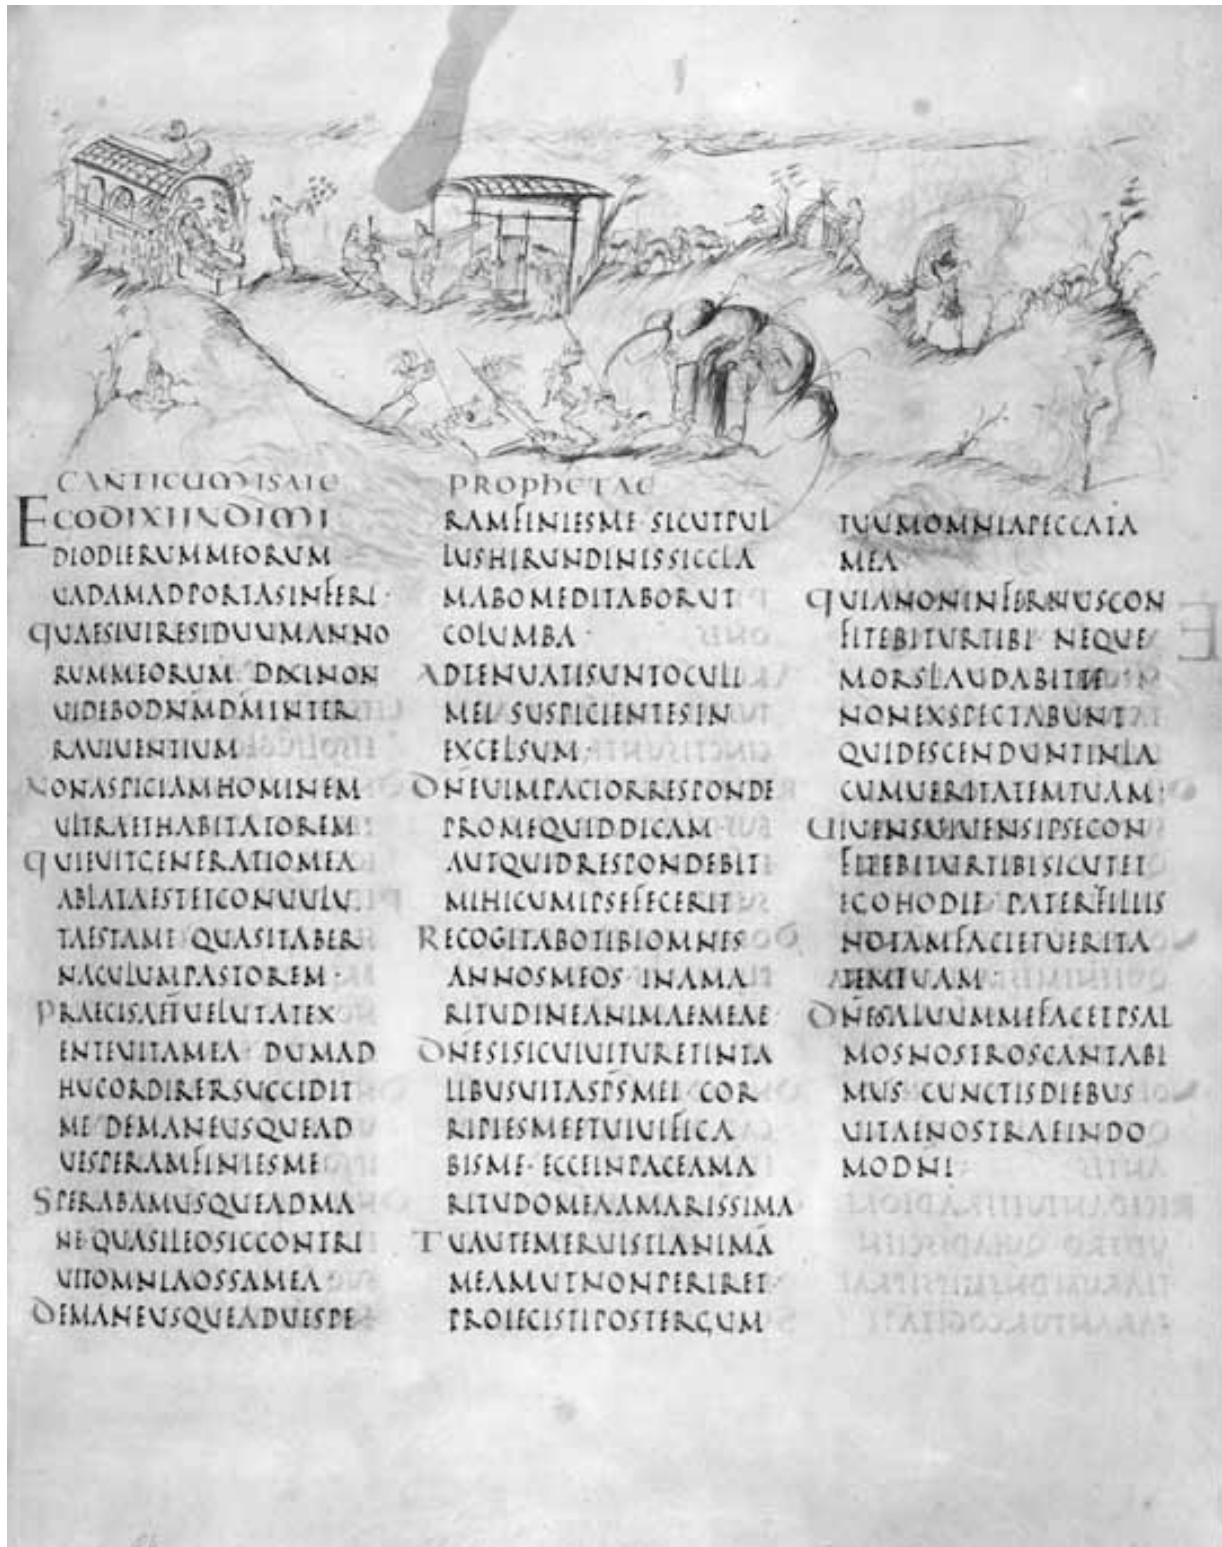 CANTICUM ISAIE PROPHETAE
EGO DIXI IN DIMI
DIO DIERUM MEORUM
UADAM AD PORTAS INFERI
QUAESIUI RESIDUUM ANNO
RUM MEORUM DIXI NON
UIDEBO DNM DM IN TER
RA UIUENTIUM
NON ASPICIAM HOMINEM
ULTRA ET HABITATOREM
QUIEUIT GENERATIO MEA
ABLATA EST ET CONUULU
TA EST A ME QUASI TABER
NACULUM PASTOREM
PRAECISA E UELUT A TEX
ENTE UITA MEA DUM AD
HUC ORDIRER SUCCIDIT
ME DE MANE USQUE AD
UESPERAM FINIES ME
SPERABAM USQUE AD MA
NE QUASI LEO SIC CONTRI
UIT OMNIA OSSA MEA
DE MANE USQUE AD UESPE
RAM FINIES ME SICUT PUL
LUS HIRUNDINIS SIC CLA
MABO MEDITABOR UT
COLUMBA
ADTENUATI SUNT OCULI
MEI SUSPICIENTES IN
EXCELSUM
DNE UIM PACIOR RESPONDE
PRO ME QUID DICAM
AUT QUID RESPONDEBIT
MIHI CUM IPSE FECERIT
RECOGITABO TIBI OMNES
ANNOS MEOS IN AMA
RITUDINE ANIMAE MEAE
DNE SI SIC UIUITUR ET IN TA
LIBUS UITA SPS MEI COR
RIPIES ME ET UIUIFICA
BIS ME ECCE IN PACE AMA
RITUDO MEA AMARISSIMA
TU AUTEM ERUISTI ANIMA
MEAM UT NON PERIRET
PROIECISTI POST ERGUM
TUUM OMNIA PECCATA
MEA
QUIA NON INFERNUS CON
FITEBITUR TIBI NEQUE
MORS LAUDABIT TE
NON EXSPECTABUNT
QUI DESCENDUNT IN LA
CUM UERITATEM TUAM
UIUENS UIUENS IPSE CON
FITEBITUR TIBI SICUT ET
EGO HODIE PATER FILIIS
NOTAM FACIET UERITA
TEM TUAM
DNE SALUUM ME FAC ET PSAL
MOS NOSTROS CANTABI
MUS CUNCTIS DIEBUS
UITAE NOSTRAE IN DO
MO DNI